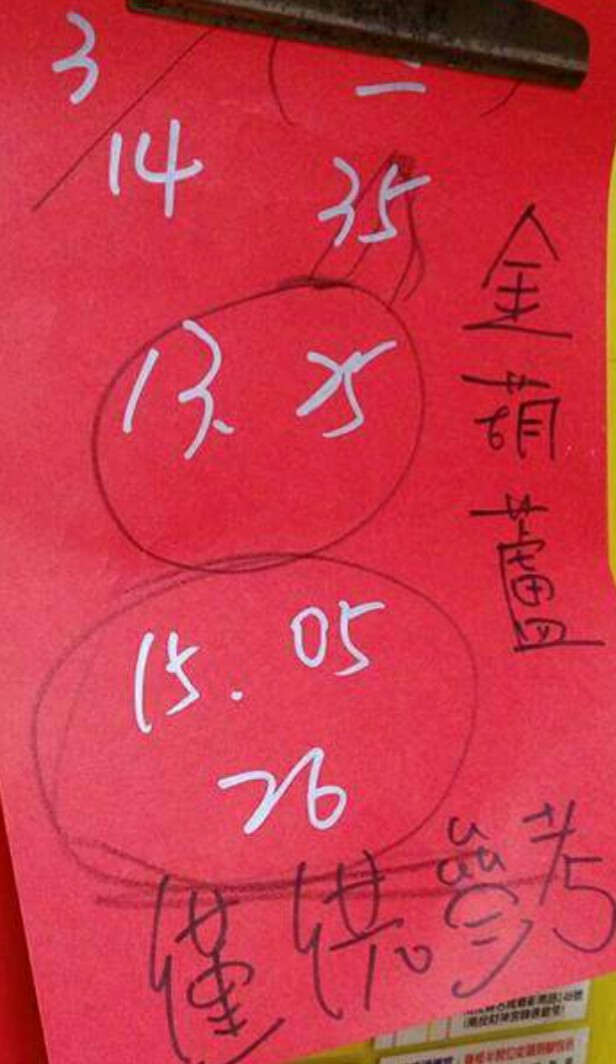 3/14 (二)
35
13、25
15.05
26
金葫蘆
僅供參考